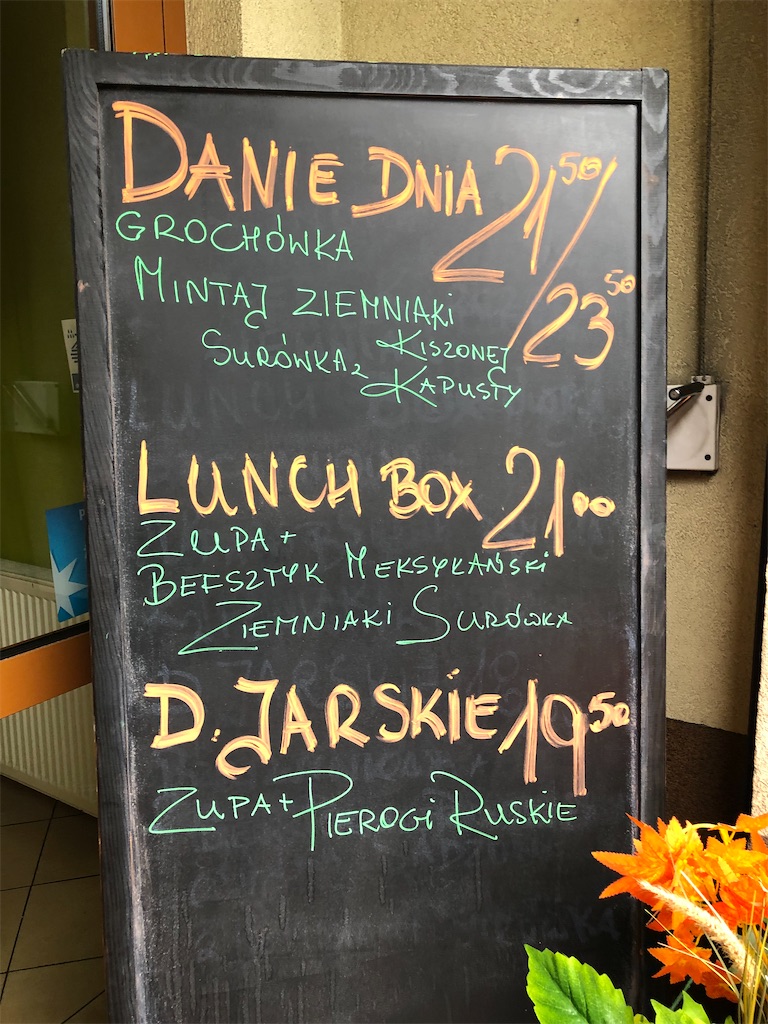 DANIE DNIA 21 50/23 50
GROCHÓWKA
MINTAJ ZIEMNIAKI
SURÓWKA Z KISZONEJ
KAPUSTY
LUNCH BOX 21 00
ZUPA +
BEFSZTYK MEKSYKAŃSKI
ZIEMNIAKI SURÓWKA
D. JARSKIE 19 50
ZUPA + PIEROGI RUSKIE